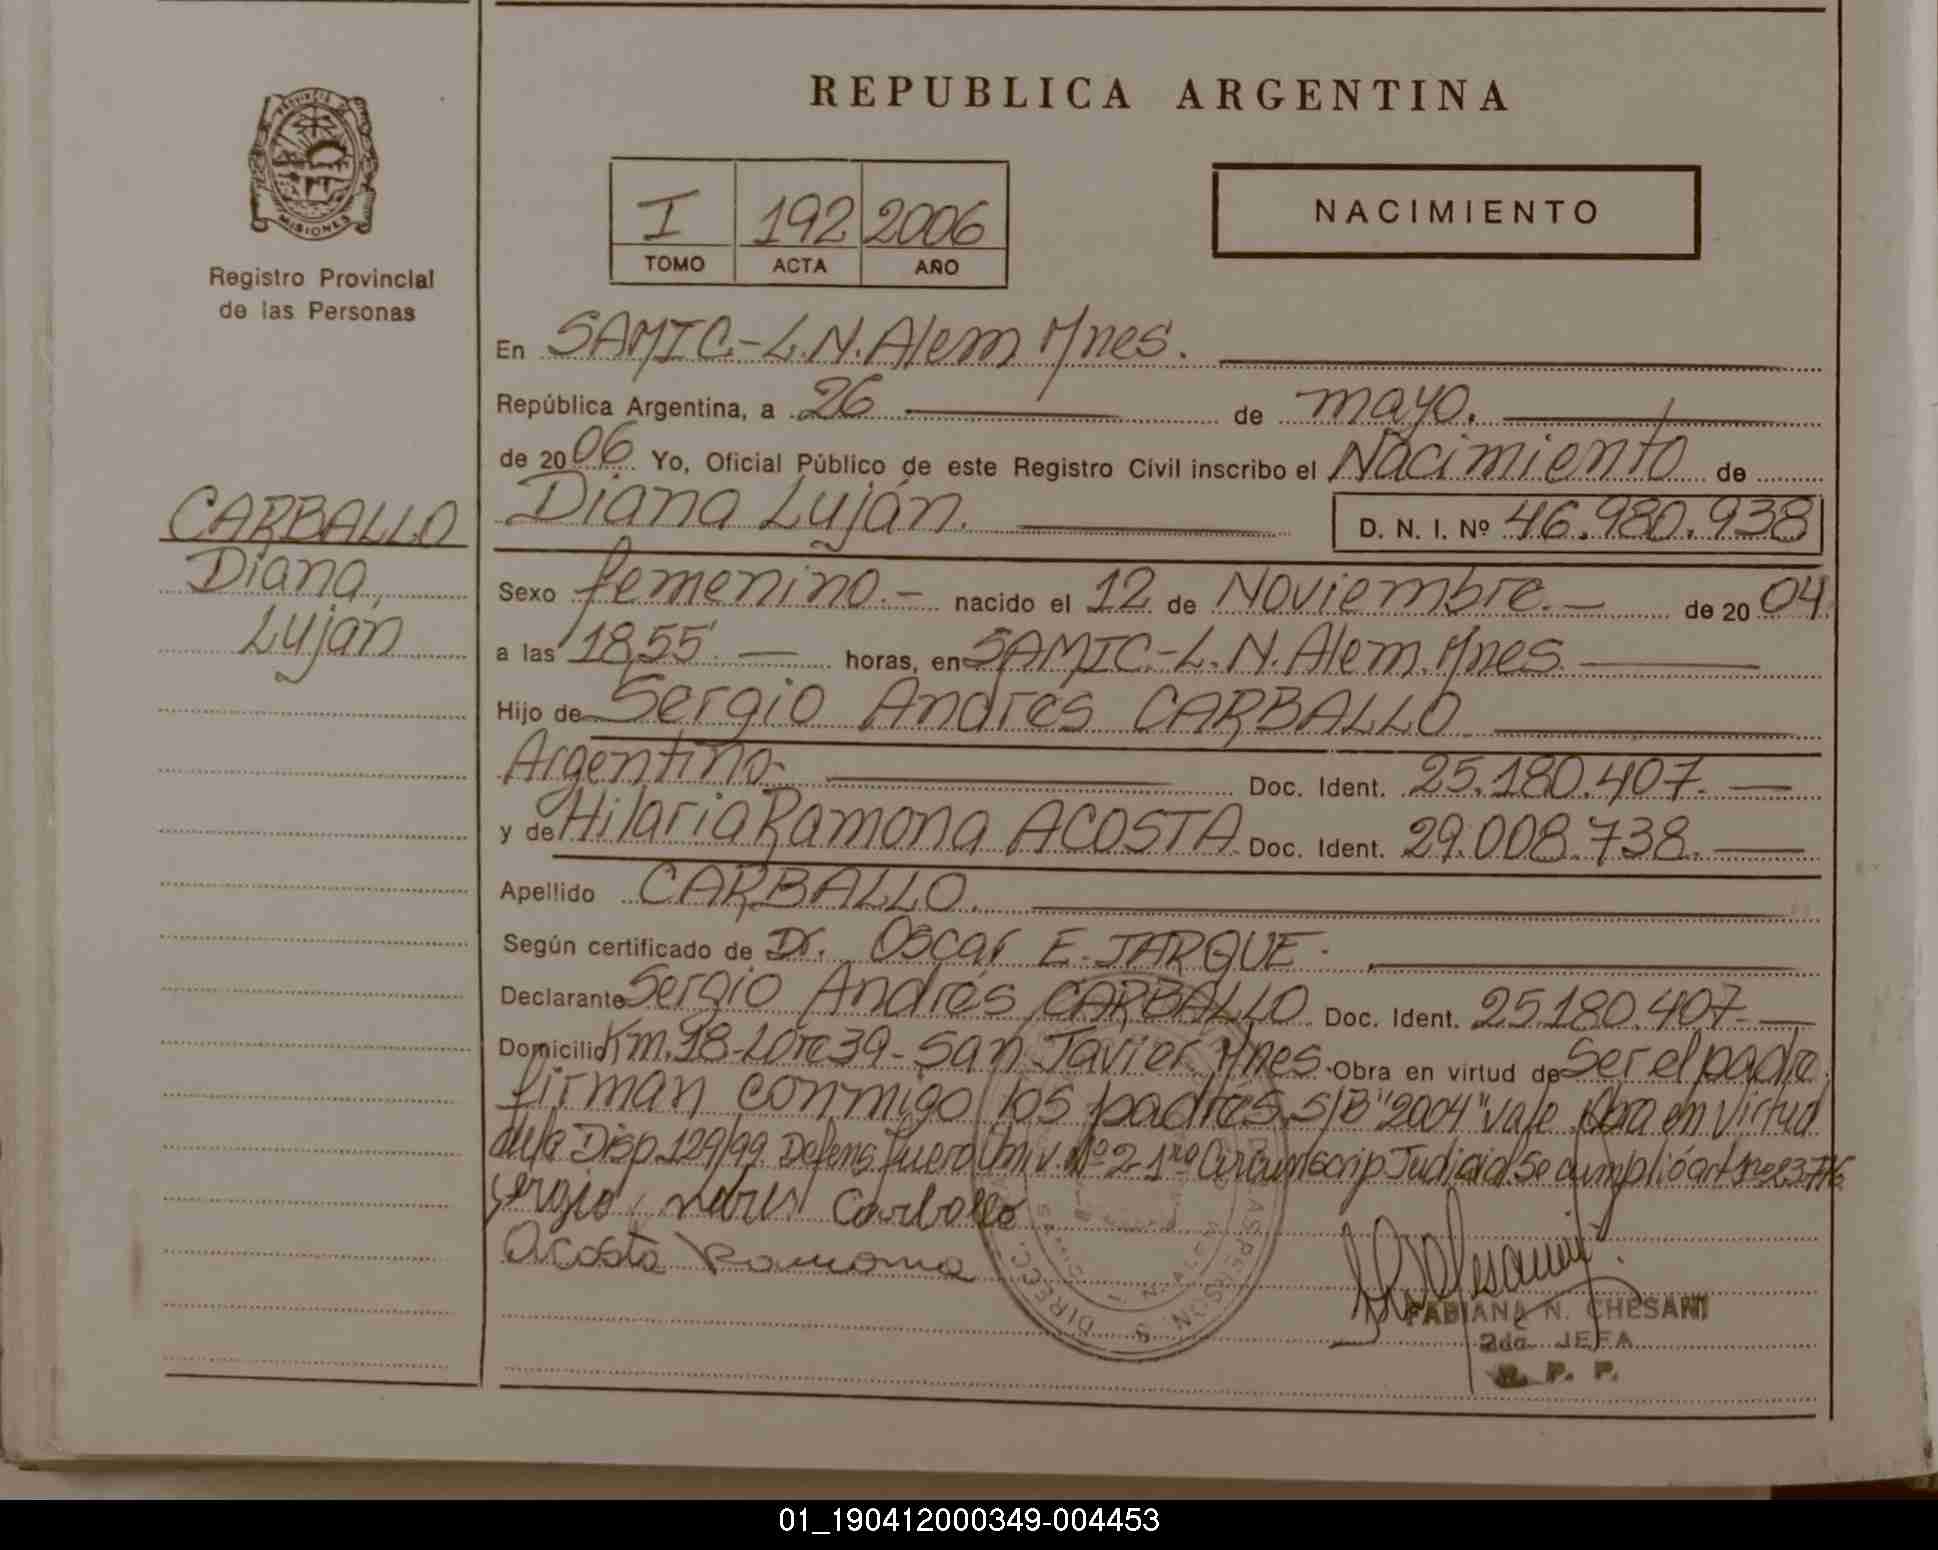 REPUBLICA ARGENTINA
MISIONES
Registro Provincial
de las Personas
I 192 2006
TOMO ACTA AÑO
NACIMIENTO
CARBALLO
Diana
Luján
En SAMIC.-L.N.Alem Mnes.
República Argentina, a 26 de mayo.
de 2006 Yo, Oficial Público de este Registro Civil inscribo el Nacimiento de
Diana Luján. D. N. I. Nº 46.980.938
Sexo femenino.- nacido el 12 de Noviembre.- de 2004
a las 18,55 horas, en SAMIC.-L.N.Alem.Mnes.
Hijo de Sergio Andrés CARBALLO
Argentino- Doc. Ident. 25.180.407.-
y de Hilaria Ramona ACOSTA Doc. Ident. 29.008.738.-
Apellido CARBALLO.
Según certificado de Dr. Oscar E. JARQUE.
Declarante Sergio Andrés CARBALLO Doc. Ident. 25.180.407.-
Domicilio Km.18-Lote 39-San Javier.Mnes. Obra en virtud de Ser el padre
firman conmigo los padres. S/B "2004" Vale. Obra en virtud
de la Disp. 129/99 Defens. fuero Univ. Nº 2 1ra Circunscrip Judicial Se cumplió art
Sergio Carballo
Acosta Ramona
FABIANA N. CHESANI
2da. JEFA
R. P. P.
01_190412000349-004453